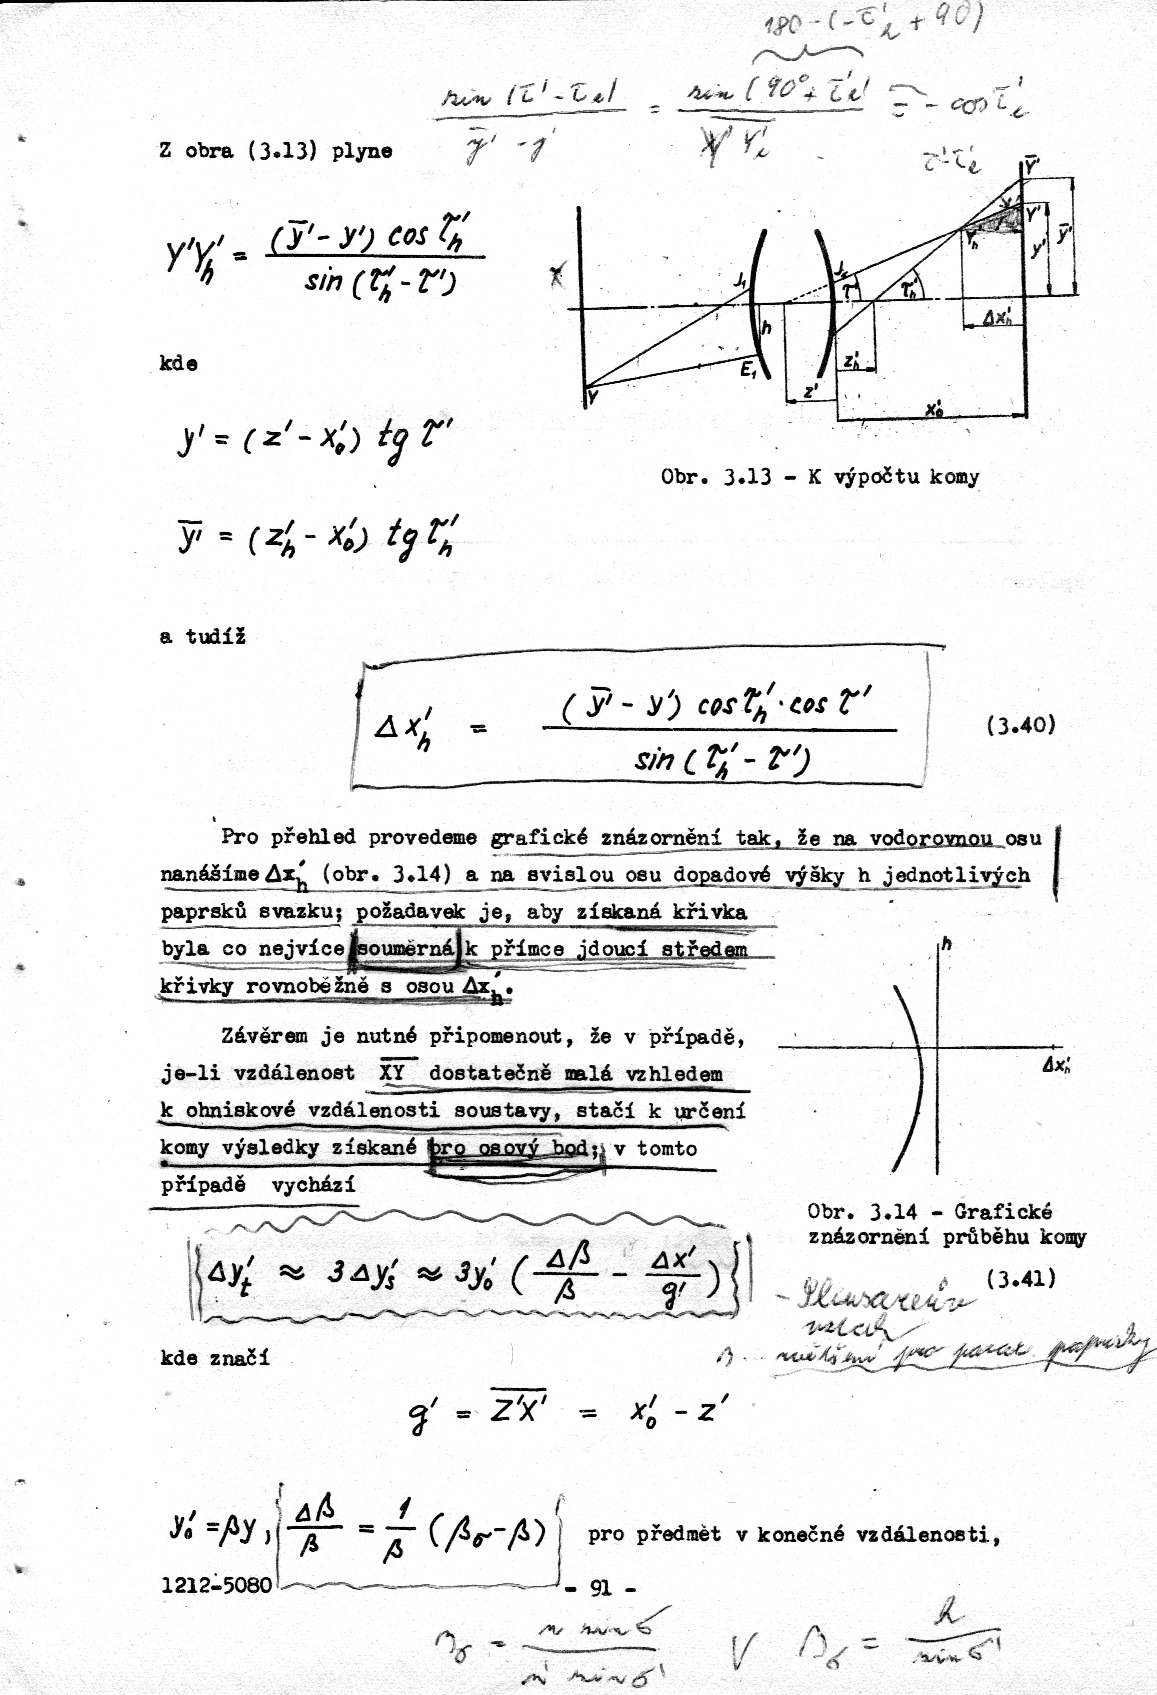 180 - (-τ'h + 90)
sin (τ' - τh) / ȳ' - y' = sin (90° + τ'h) / Y'Y'h = - cos τ'h
Z obra (3.13) plyne
τ'-τ'h
Y'Y'h = (ȳ' - y') cos τ'h / sin (τ'h - τ')
Ȳ'
Y'
Y'h
y'
ȳ'
J1
J2
τ'
τ'h
Δx'h
h
E1
z'h
z'
Y
x'0
kde
y' = (z' - x'0) tg τ'
Obr. 3.13 - K výpočtu komy
ȳ' = (z'h - x'0) tg τ'h
a tudíž
Δx'h = (ȳ' - y') cos τ'h · cos τ' / sin (τ'h - τ') (3.40)
Pro přehled provedeme grafické znázornění tak, že na vodorovnou osu
nanášíme Δx'h (obr. 3.14) a na svislou osu dopadové výšky h jednotlivých
paprsků svazku; požadavek je, aby získaná křivka
byla co nejvíce souměrná k přímce jdoucí středem
křivky rovnoběžně s osou Δx'h.
h
Δx'h
Závěrem je nutné připomenout, že v případě,
je-li vzdálenost X̅Y̅ dostatečně malá vzhledem
k ohniskové vzdálenosti soustavy, stačí k určení
komy výsledky získané pro osový bod; v tomto
případě vychází
Obr. 3.14 - Grafické
znázornění průběhu komy
Δy't ≈ 3Δy's ≈ 3y'0 (Δβ/β - Δx'/g') (3.41)
vztah
kde značí
β.. zvětšení pro parax paprsky
g' = Z̅'X̅' = x'0 - z'
y'0 = βy, Δβ/β = 1/β (βσ - β) pro předmět v konečné vzdálenosti,
1212-5080
- 91 -
βσ = n sin σ / n' sin σ' V βσ = h / sin σ'